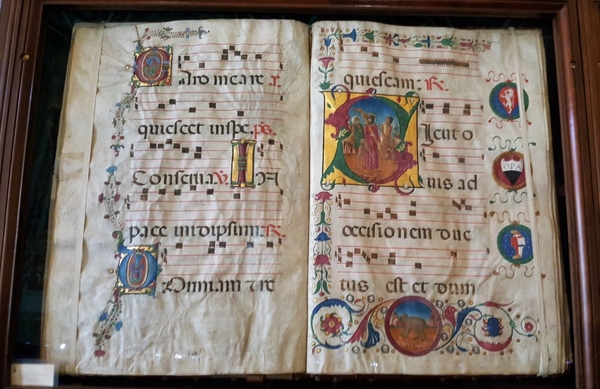 Caro mea re
quiescet inspe. ps.
Conserua. IN
pace inidipsum: R.
quiescam: R.
Sicut o
uis ad
occisionem duc
tus est et dum
OPA